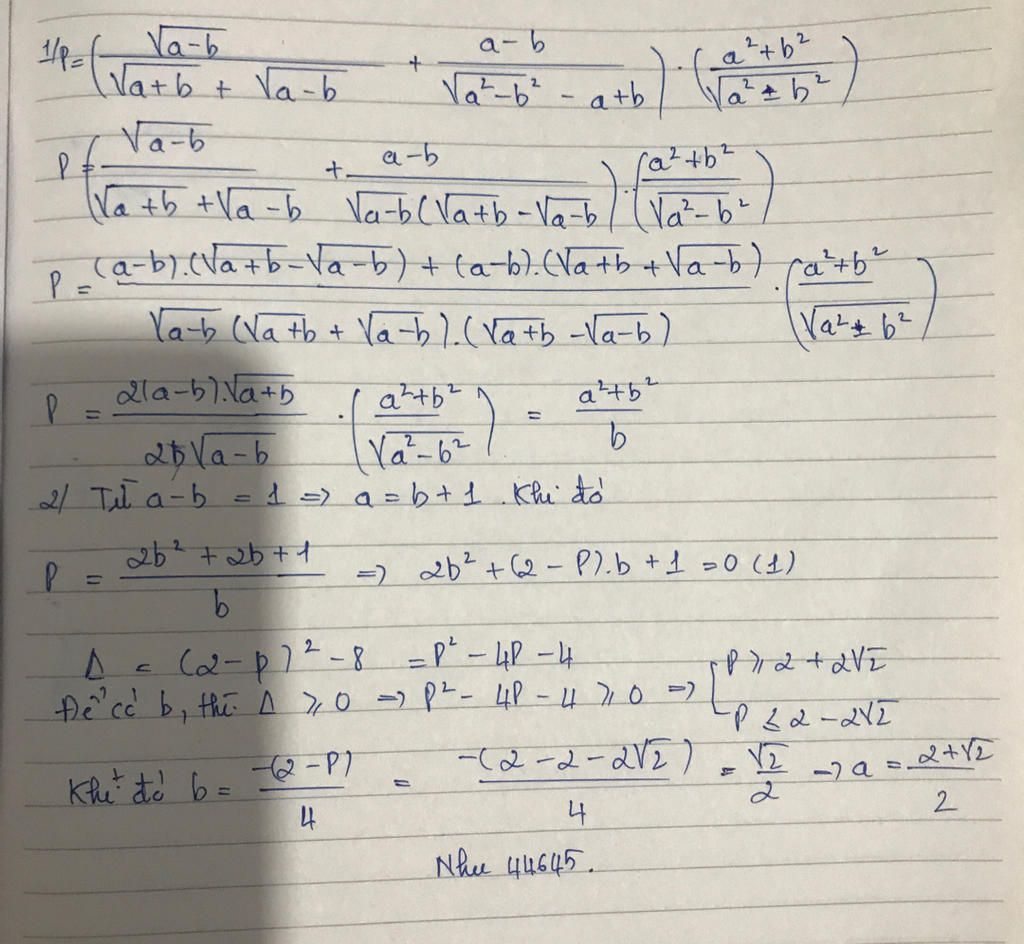 1/ P = (√(a-b) / (√(a+b) + √(a-b)) + (a-b) / (√(a²-b²) - a+b)) . ((a²+b²) / √(a²-b²))
P = (√(a-b) / (√(a+b) + √(a-b)) + (a-b) / (√(a-b) (√(a+b) - √(a-b)))) . ((a²+b²) / √(a²-b²))
P = ((a-b).(√(a+b) - √(a-b)) + (a-b).(√(a+b) + √(a-b))) / (√(a-b) (√(a+b) + √(a-b)).(√(a+b) - √(a-b))) . ((a²+b²) / √(a²-b²))
P = 2(a-b).√(a+b) / (2b√(a-b)) . ((a²+b²) / √(a²-b²)) = (a²+b²) / b
2/ Từ a-b = 1 => a = b+1. Khi đó
P = (2b² + 2b + 1) / b => 2b² + (2-P).b + 1 = 0 (1)
Δ = (2-P)² - 8 = P² - 4P - 4
Để có b, thì Δ ⩾ 0 => P² - 4P - 4 ⩾ 0 => [ P ⩾ 2 + 2√2
P ⩽ 2 - 2√2
Khi đó b = -(2-P) / 4 = -(2-2-2√2) / 4 = √2 / 2 → a = (2+√2) / 2
Như 44645.